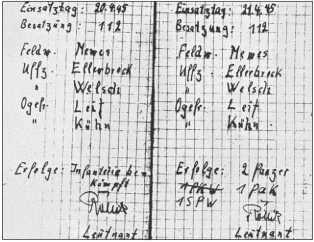 Einsatztag: 20.4.45
Besatzung: 112
Feldw. Nemes
Uffz. Ellerbrock
" Welsch
Ogefr. Leif
" Kühn
Erfolge: Infanterie bekämpft
Leutnant
Einsatztag: 21.4.45
Besatzung: 112
Feldw. Nemes
Uffz. Ellerbrock
" Welsch
Ogefr. Leif
" Kühn
Erfolge: 2 Panzer
1 PKW 1 Pak
1 SPW
Leutnant